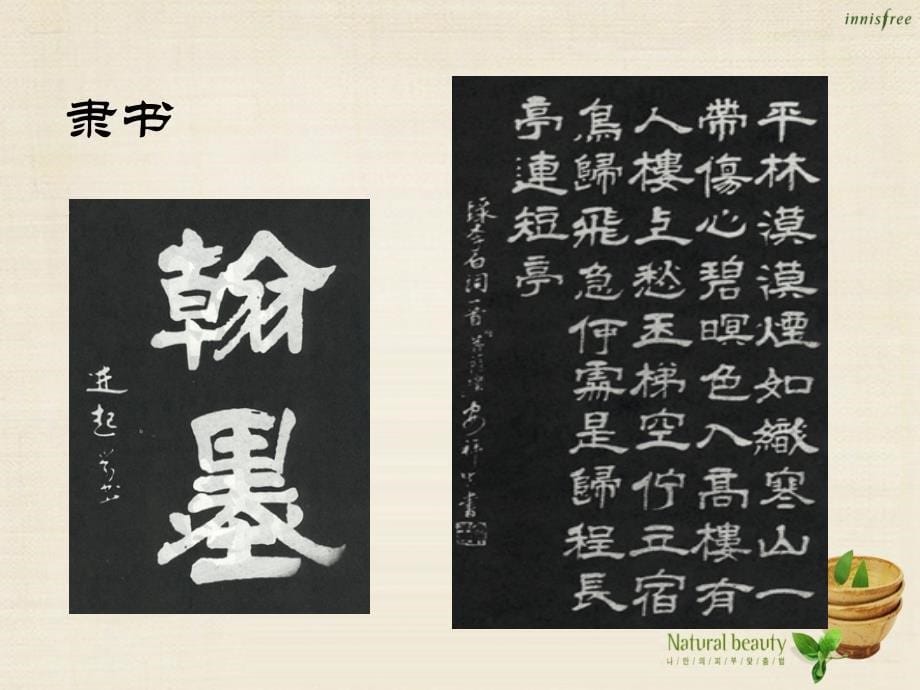 innisfree
隶书
翰墨
平林漠漠煙如織寒山一
帶傷心碧暝色入高樓有
人樓上愁玉梯空佇立宿
鳥歸飛急何處是歸程長
亭連短亭
词一首
書
Natural beauty
나/만/의/피/부/맞/춤/법